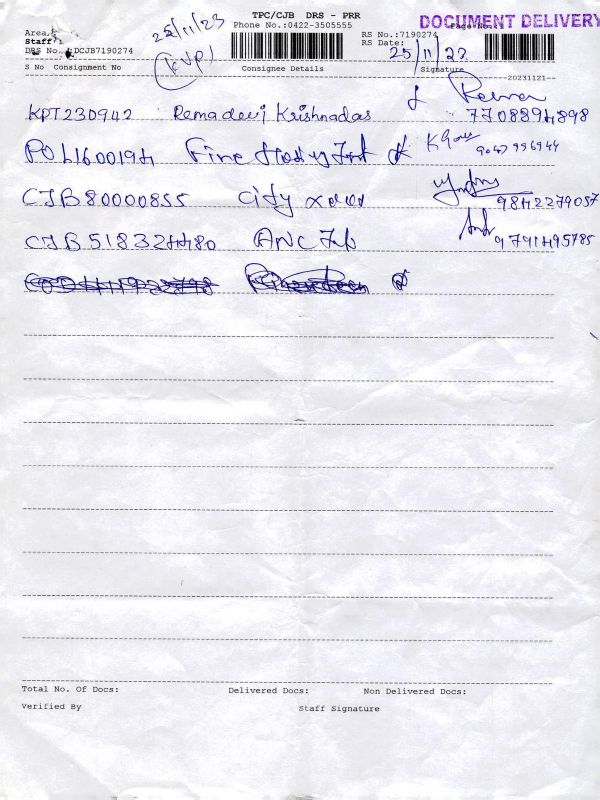 TPC/CJB DRS - PRR
DOCUMENT DELIVERY
25/11/23
Phone No.:0422-3505555
Page No.:
Area
RS No.:7190274
Staff
RS Date:
25/11/23
DRS No. :DCJB7190274
(KVP)
S No Consignment No Consignee Details Signature
--20231121--
KPT230942 Remadevi Krishnadas
7708894898
POL1600194 Fine
CJB80000855 City xerox 9842279057
CJB518324480 ANC 9791495785
Total No. Of Docs: Delivered Docs: Non Delivered Docs:
Verified By Staff Signature